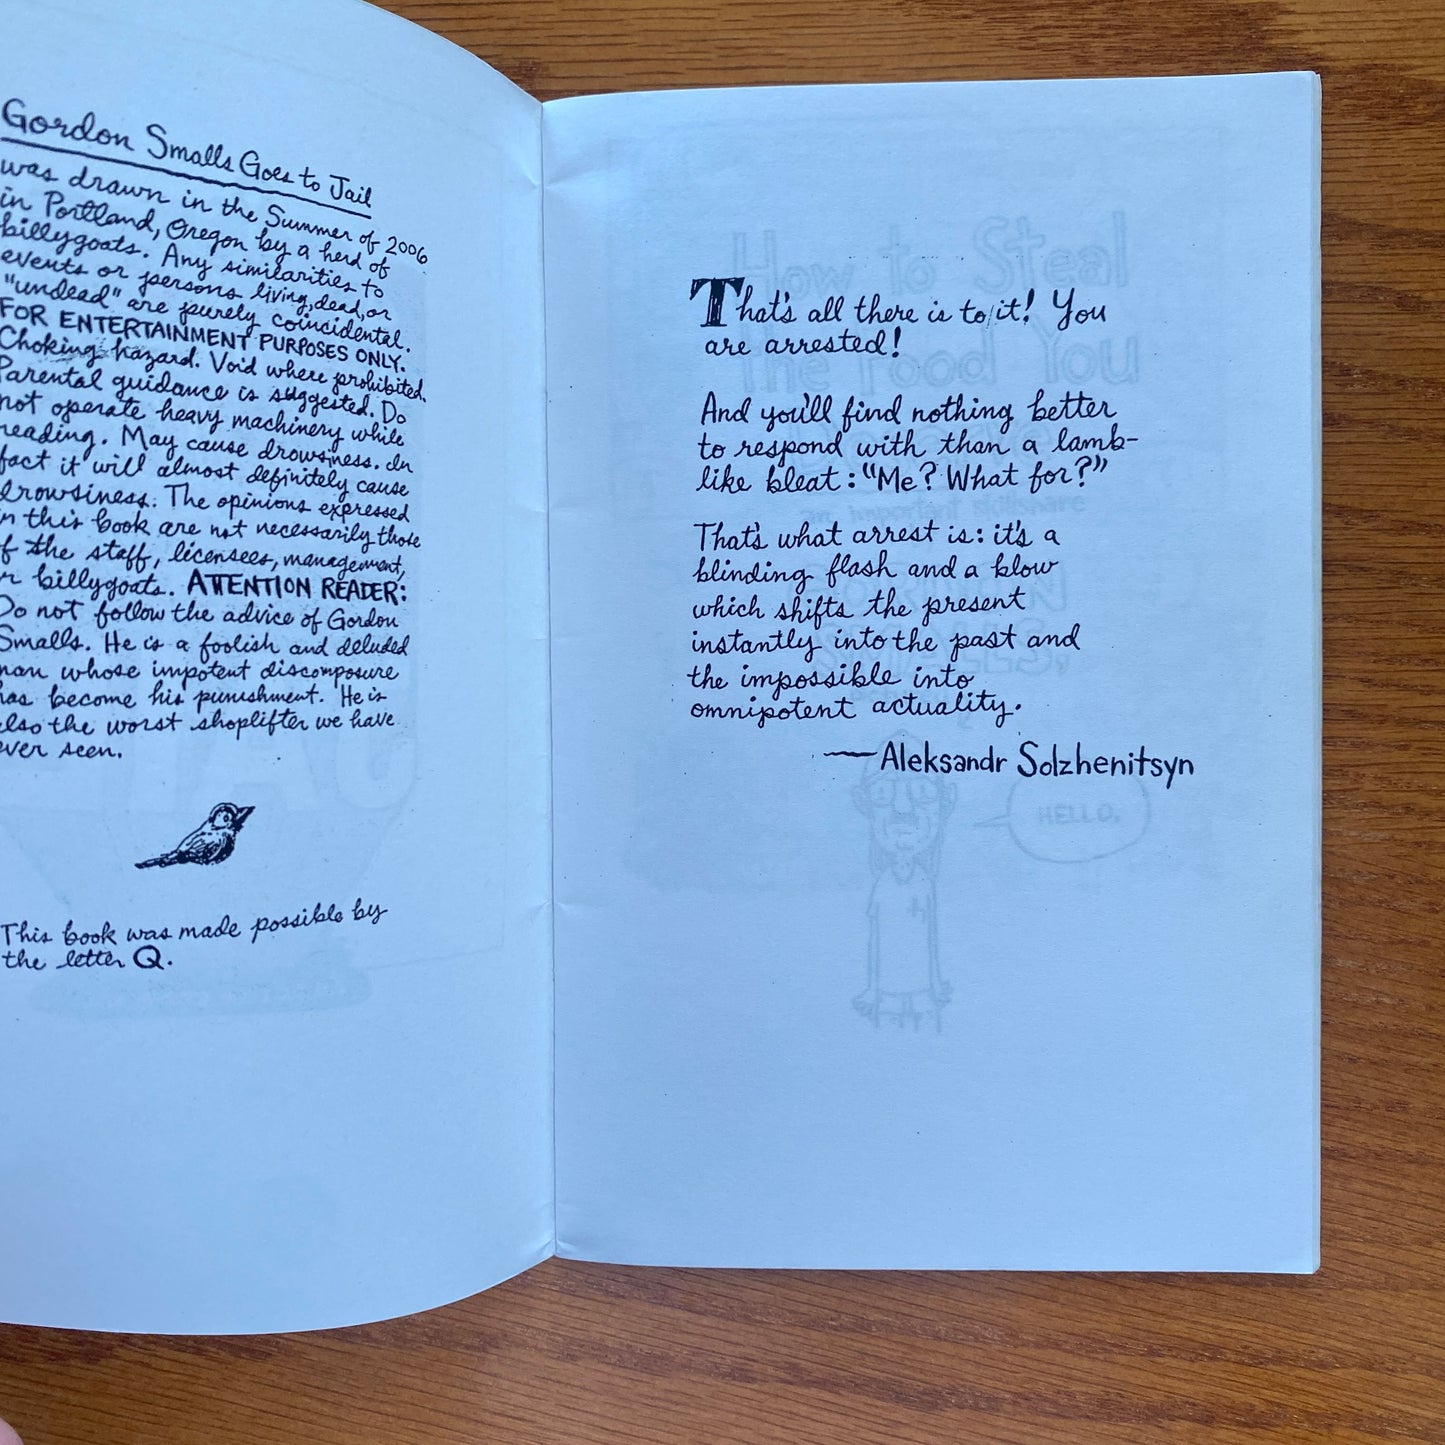 Gordon Smalls Goes to Jail
was drawn in the Summer of 2006
in Portland, Oregon by a herd of
billygoats. Any similarities to
events or persons living, dead, or
"undead" are purely coincidental.
FOR ENTERTAINMENT PURPOSES ONLY.
Choking hazard. Void where prohibited.
Parental guidance is suggested. Do
not operate heavy machinery while
reading. May cause drowsiness. In
fact it will almost definitely cause
drowsiness. The opinions expressed
in this book are not necessarily those
of the staff, licensees, management,
or billygoats. ATTENTION READER:
Do not follow the advice of Gordon
Smalls. He is a foolish and deluded
man whose impotent discomposure
has become his punishment. He is
also the worst shoplifter we have
ever seen.
This book was made possible by
the letter Q.
That's all there is to it! You
are arrested!
And you'll find nothing better
to respond with than a lamb-
like bleat: "Me? What for?"
That's what arrest is: it's a
blinding flash and a blow
which shifts the present
instantly into the past and
the impossible into
omnipotent actuality.
—Aleksandr Solzhenitsyn
How to Steal
the Food You
an important skillshare
HELLO.